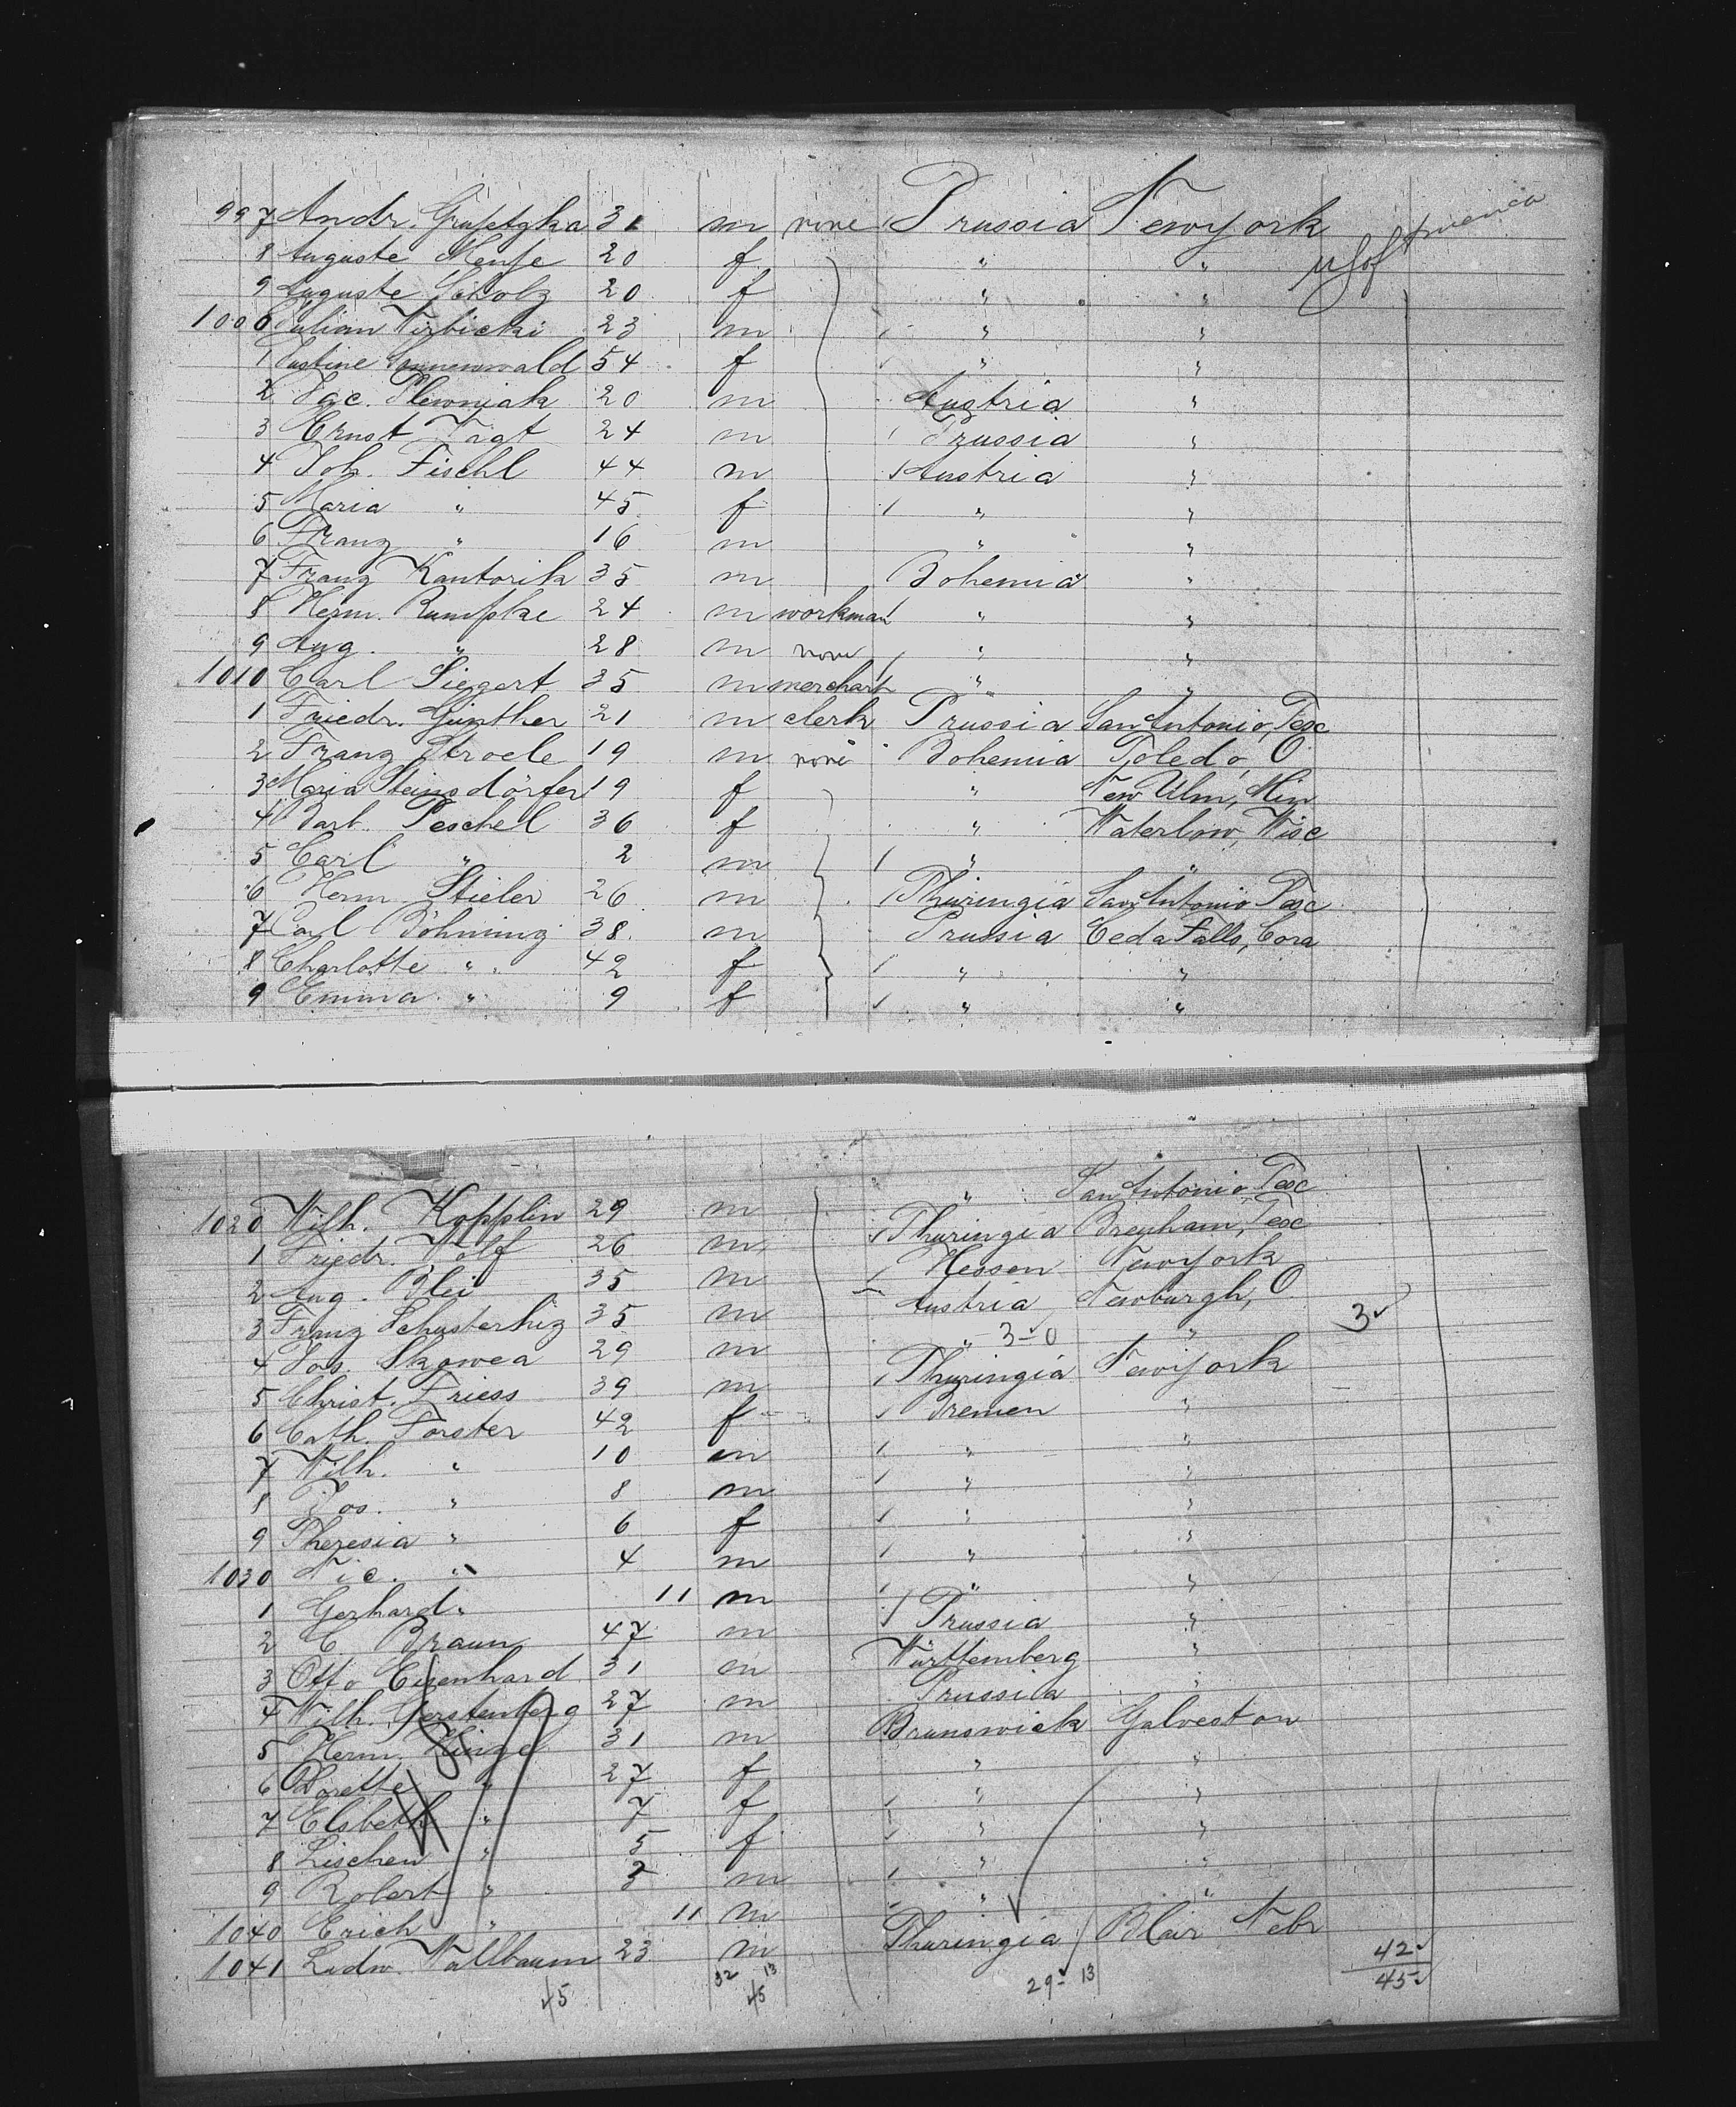 997 Andr. 31 m none Prussia New york America
8 Auguste Mense 20 f " " U S of
9 Auguste Scholz 20 f " "
1000 Julian Wirbicki 23 m " "
1 Justine Sonnenwald 54 f " "
2 Jac. Plewnjak 20 m Austria "
3 Ernst Vagt 24 m Prussia "
4 Joh. Fischl 44 m Austria "
5 Maria " 45 f " "
6 Franz " 16 m " "
7 Franz Kantorik 35 m Bohemia "
8 Herm. Rumpke 24 m workman " "
9 Aug. " 28 m none " "
1010 Carl Siegert 35 m merchant " "
1 Friedr. Günther 21 m clerk Prussia San Antonio, Tex
2 Franz Stroele 19 m none Bohemia Toledo, O
3 Maria Steinsdörfer 19 f " New Ulm, Min
4 Barb. Peschel 36 f " Waterlow, Wisc
5 Carl " 2 m " "
6 Herm. Stieler 26 m Thüringia San Antonio Tex
7 Carl Böhning 38 m Prussia Ceda Falls,
8 Charlotte " 42 f " "
9 Emma " 9 f " "
1020 Wilh. Kopplin 29 m " San Antonio, Tex
1 Friedr. Wolf 26 m Thuringia Brenham, Tex
2 Aug. Blei 35 m Hessen New york
3 Franz 35 m Austria Newburgh, O
4 Jos. Skowea 29 m " 3-0 " 3
5 Christ. Friess 39 m Thuringia New york
6 Cath. Forster 42 f Bremen "
7 Wilh. " 10 m " "
8 Jos. " 8 m " "
9 Theresia " 6 f " "
1030 Nic. " 4 m " "
1 Gerhard " 11 m " "
2 C Braun 47 m Prussia "
3 Otto Eisenhard 31 m Württemberg "
4 Wilh. Gerstenberg 27 m Prussia "
5 Herm. 31 m Brunswick Galveston
6 Dorette " 27 f " "
7 Elsbeth " 7 f " "
8 Lischen " 5 f " "
9 Robert " 3 m " "
1040 Erich " 11 m " "
1041 Ludw. Wallbaum 23 m Thuringia Blair Nebr
42
45 32 13 45 29 13 45